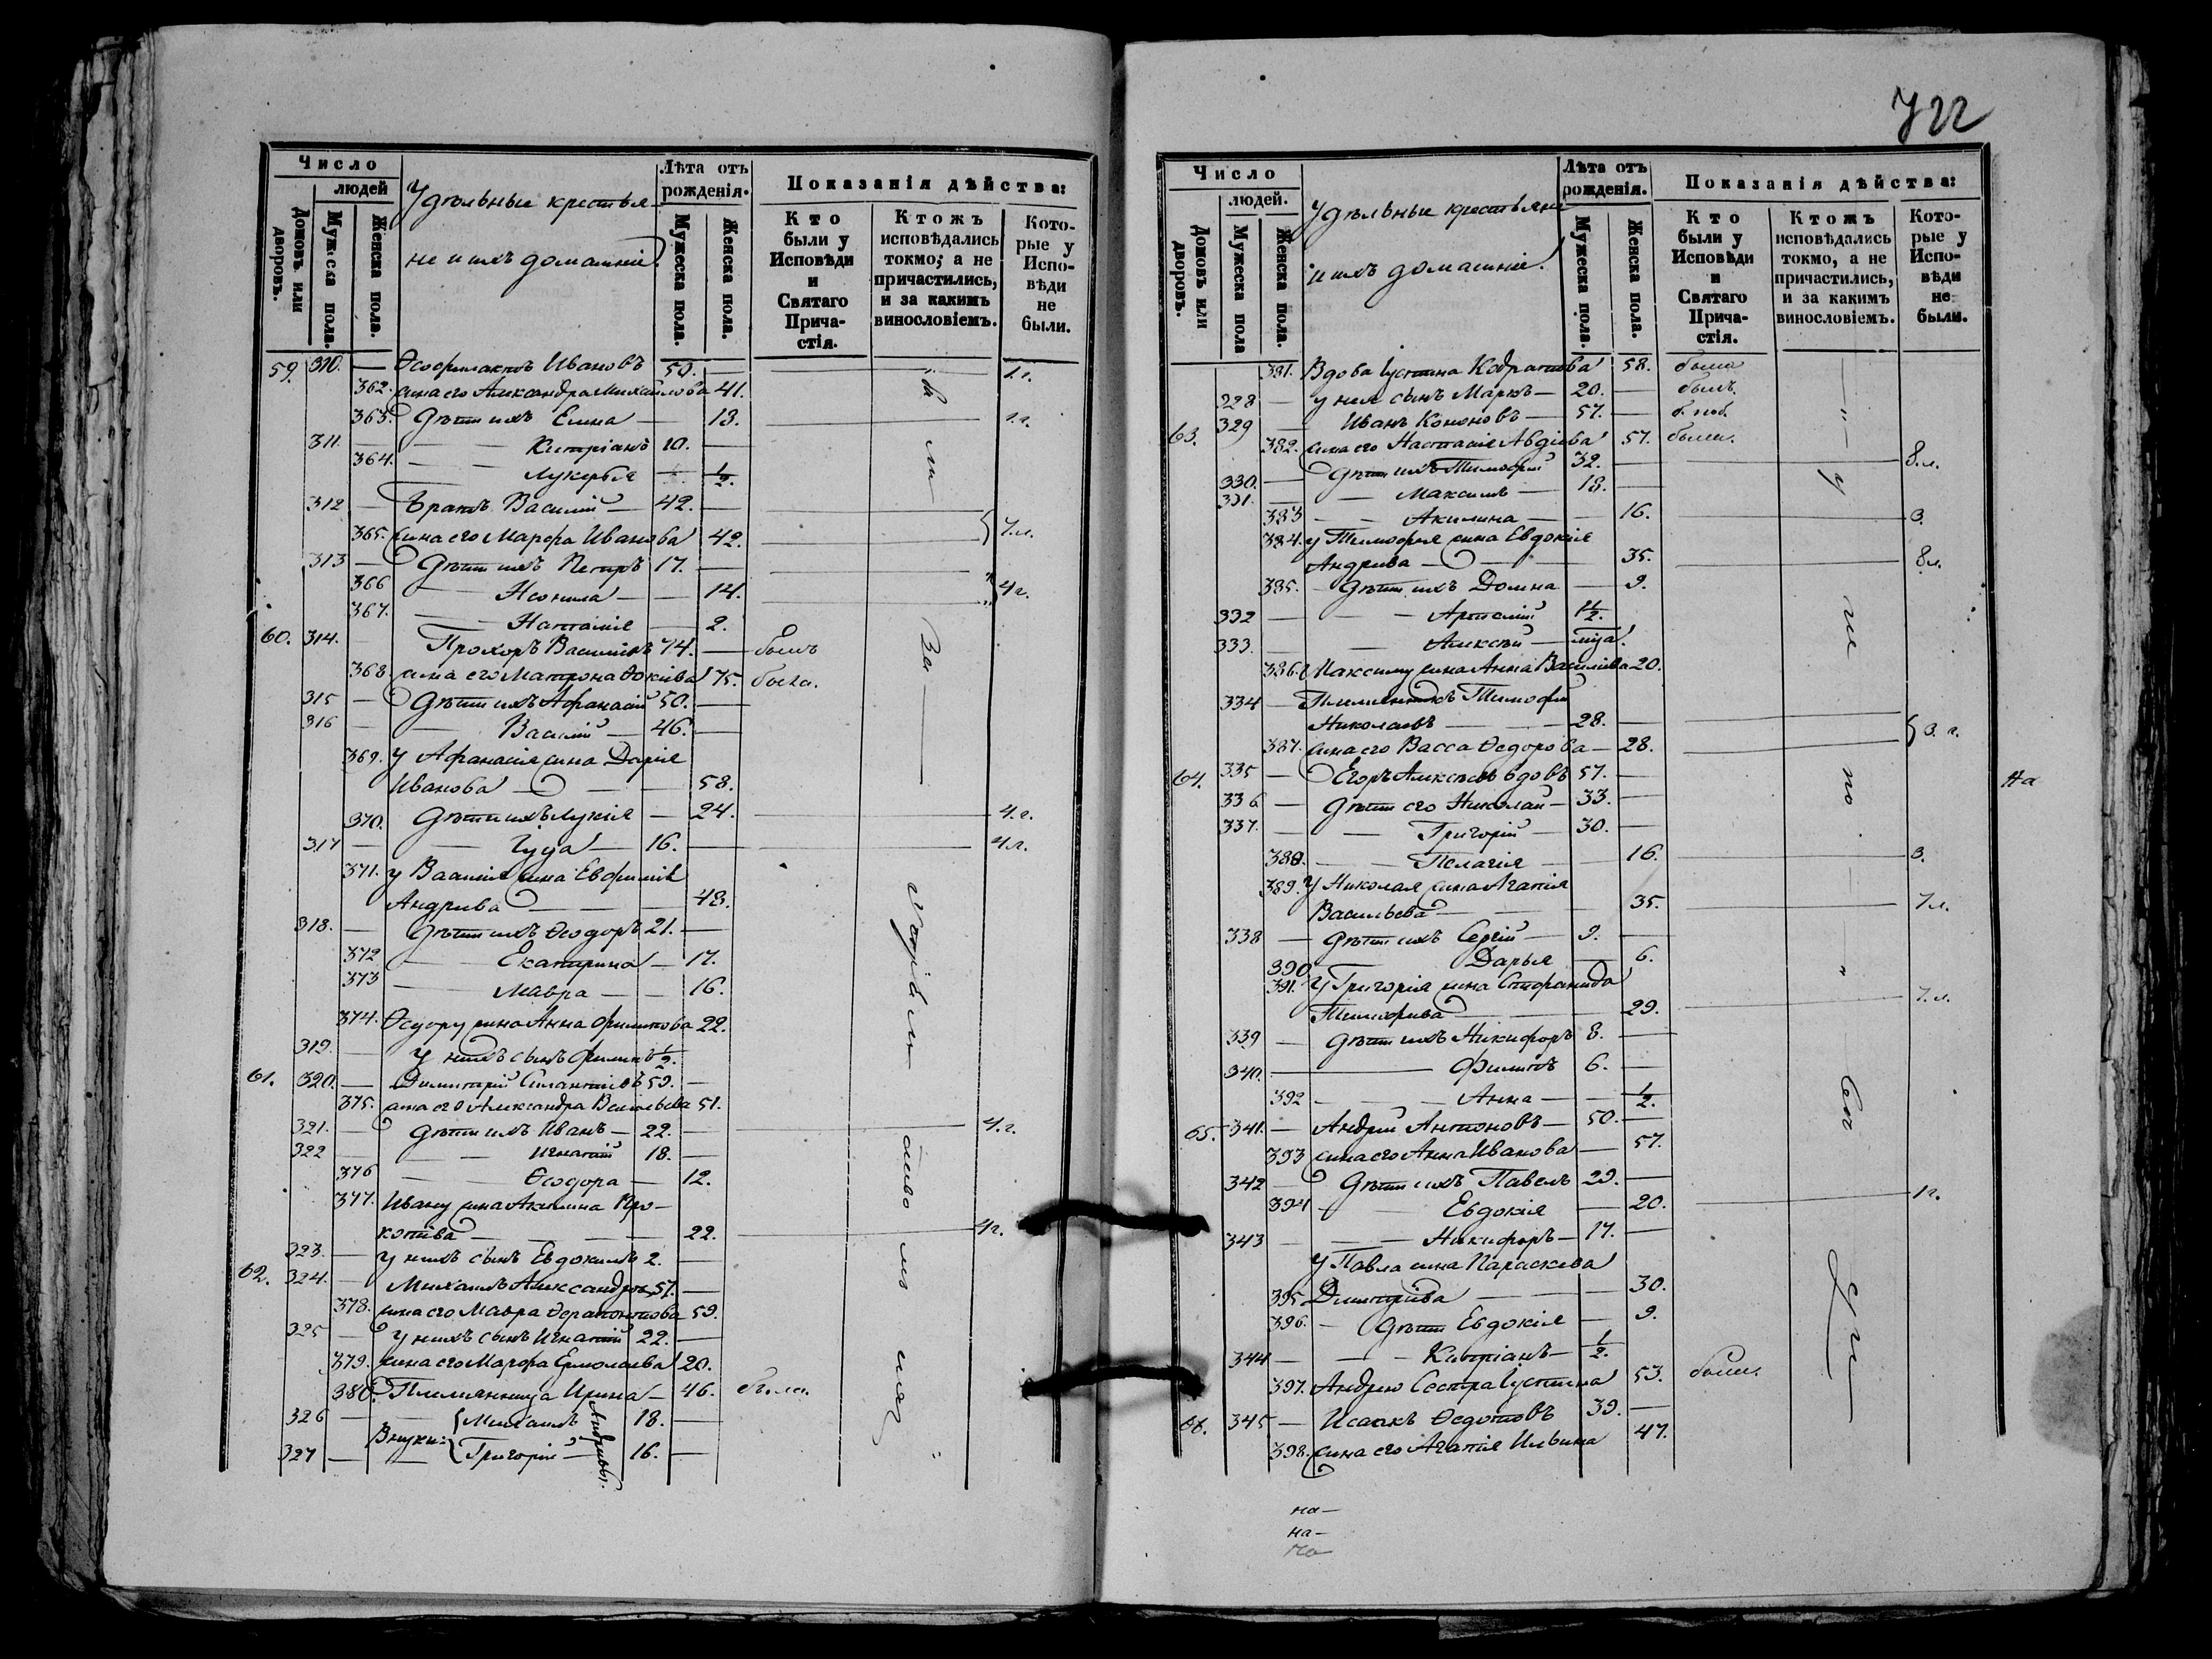 Число
людей
Домовъ или дворовъ.
Мужеска пола.
Женска пола.
Удѣльные крестья-
не и ихъ домашніе.
Лѣта отъ рожденія.
Мужеска пола.
Женска пола.
Показанія дѣйства:
Кто были у Исповѣди и Святаго Прича-стія.
Ктожъ исповѣдались токмо, а не причастились, и за какимъ винословіемъ.
Кото-рые у Испо-вѣди не были.
59. 310. — Ѳеофилактъ Ивановъ 50. — 1 г.
362. жена его Александра Михайлова 41.
363. дѣти ихъ Елена — 13. 1 г.
311. — Кипріанъ 10. —
364. — — Лукерья — ½.
312 — Братъ Василій — 42. —
365. жена его Марѳа Иванова 42. 7.л.
313 — дѣти ихъ Петръ 17. —
366 — Неонила — — 14. 4 г.
367. — Наталія — 2.
60. 314. Прохоръ Васильевъ 74. — былъ
368 жена его Матрона 75. была.
315 — дѣти ихъ Афанасій 50. —
316 — Василій — 46. —
369. у Афанасія жена Дарія
Иванова — — — 58.
370. дѣти ихъ Лукія — 24. 4.г.
317 — Іуда — 16. — 4 л.
371. у Василія жена Евфимія
Андреева — — — 48.
318. — дѣти ихъ Ѳеодоръ 21. —
372 — Екатерина — 17.
373 — Мавра — — 16.
374. Ѳедору жена Анна Филипова 22.
319. — у нихъ сынъ Филипъ ½.
61. 320. — Димитрій Силантіевъ 59. —
375. жена его Александра Васильева 51.
321. — дѣти ихъ Иванъ — 22. — 4.г.
322 — — Игнатій 18. —
376 — — Ѳеодора — 12.
377. Ивану жена Акилина Про-
копіева — — — 22. 4 г.
323. — у нихъ сынъ Евдокимъ 2. —
62. 324. — Михаилъ Александровъ 57. —
378. жена его Мавра Ѳерапонтова 59.
325 — у нихъ сынъ Игнатій 22. —
379. жена его Марѳа Ермолаева 20.
380. Племянница Ирина — 46. была.
326 — Внуки: Михаилъ 18. —
327 — Григорій — 16. —
Андреевы.
722
Число
людей.
Домовъ или дворовъ.
Мужеска пола
Женска пола.
Удѣльные крестьяне
и ихъ домашніе.
Лѣта отъ рожденія.
Мужеска пола.
Женска пола.
Показанія дѣйства:
Кто были у Исповѣди и Святаго Прича-стія.
Ктожъ исповѣдались токмо, а не причастились, и за какимъ винословіемъ.
Кото-рые у Испо-вѣди не были.
381. Вдова Іустина Кодратова 58. была
328 — у нея сынъ Маркъ — 20. — былъ.
63. 329 — Иванъ Кононовъ — 57. —
382. жена его Настасія Авдіева 57. была.
330. — дѣти ихъ Тимофей 32. — 8.л.
331. — — Максимъ — 18. —
383 — — Акилина — — 16. 3.
384. у Тимофея жена Евдокія
Андреева — — 35. 8 л.
385. — дѣти ихъ Домна — 9.
332 — — Артемій 1½.
333. — Алексѣй — мѣца.
386. Максиму жена Анна Васильева 20.
334 — Племянникъ Тимофей
Николаевъ — — 28. —
387. жена его Васса Ѳедорова — 28. 3. г.
64. 335 — Егоръ Алексѣевъ вдовъ 57. —
336 — дѣти его Николай — 33. —
337. — — Григорій — 30. —
388. — — Пелагія — — 16. 3.
389. У Николая жена Агапія
Васильева — — 35. 7.л.
338 — дѣти ихъ Сергій — 9. —
390 — Дарья — 6.
391. У Григорія жена Стефанида
Тимофеева — — 29. 7.л.
339 — дѣти ихъ Никифоръ 8. —
340. — — Филипъ 6. —
392 — — Анна — — ½.
65. 341. — Андрей Антоновъ — 50. —
393 жена его Анна Иванова — 57.
342 — дѣти ихъ Павелъ 29. —
394 — — Евдокія — 20. 1 г.
343 — — Никифоръ — 17. —
У Павла жена Параскева
395 Димитріева — — — 30.
396. — дѣти Евдокія — 9.
344 — — Кипріанъ — ½.
397. Андрею Сестра Іустина 53. была.
66. 345 — Исаакъ Ѳедотовъ 39. —
398. жена его Агапія Ильина 47.
на —
на —
на